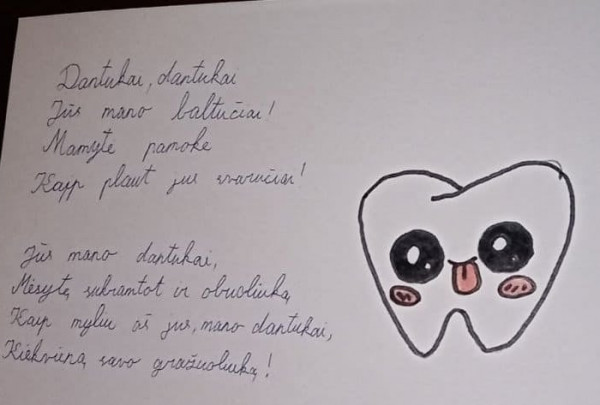 Dantukai, dantukai
Jūs mano baltučiai!
Mamytė pamokė
Kaip plaut jus švaručiai!
Jūs mano dantukai,
Mėsytę sukramtot ir obuoliuką,
Kaip myliu aš jus, mano dantukai,
Kiekvieną savo gražuoliuką!